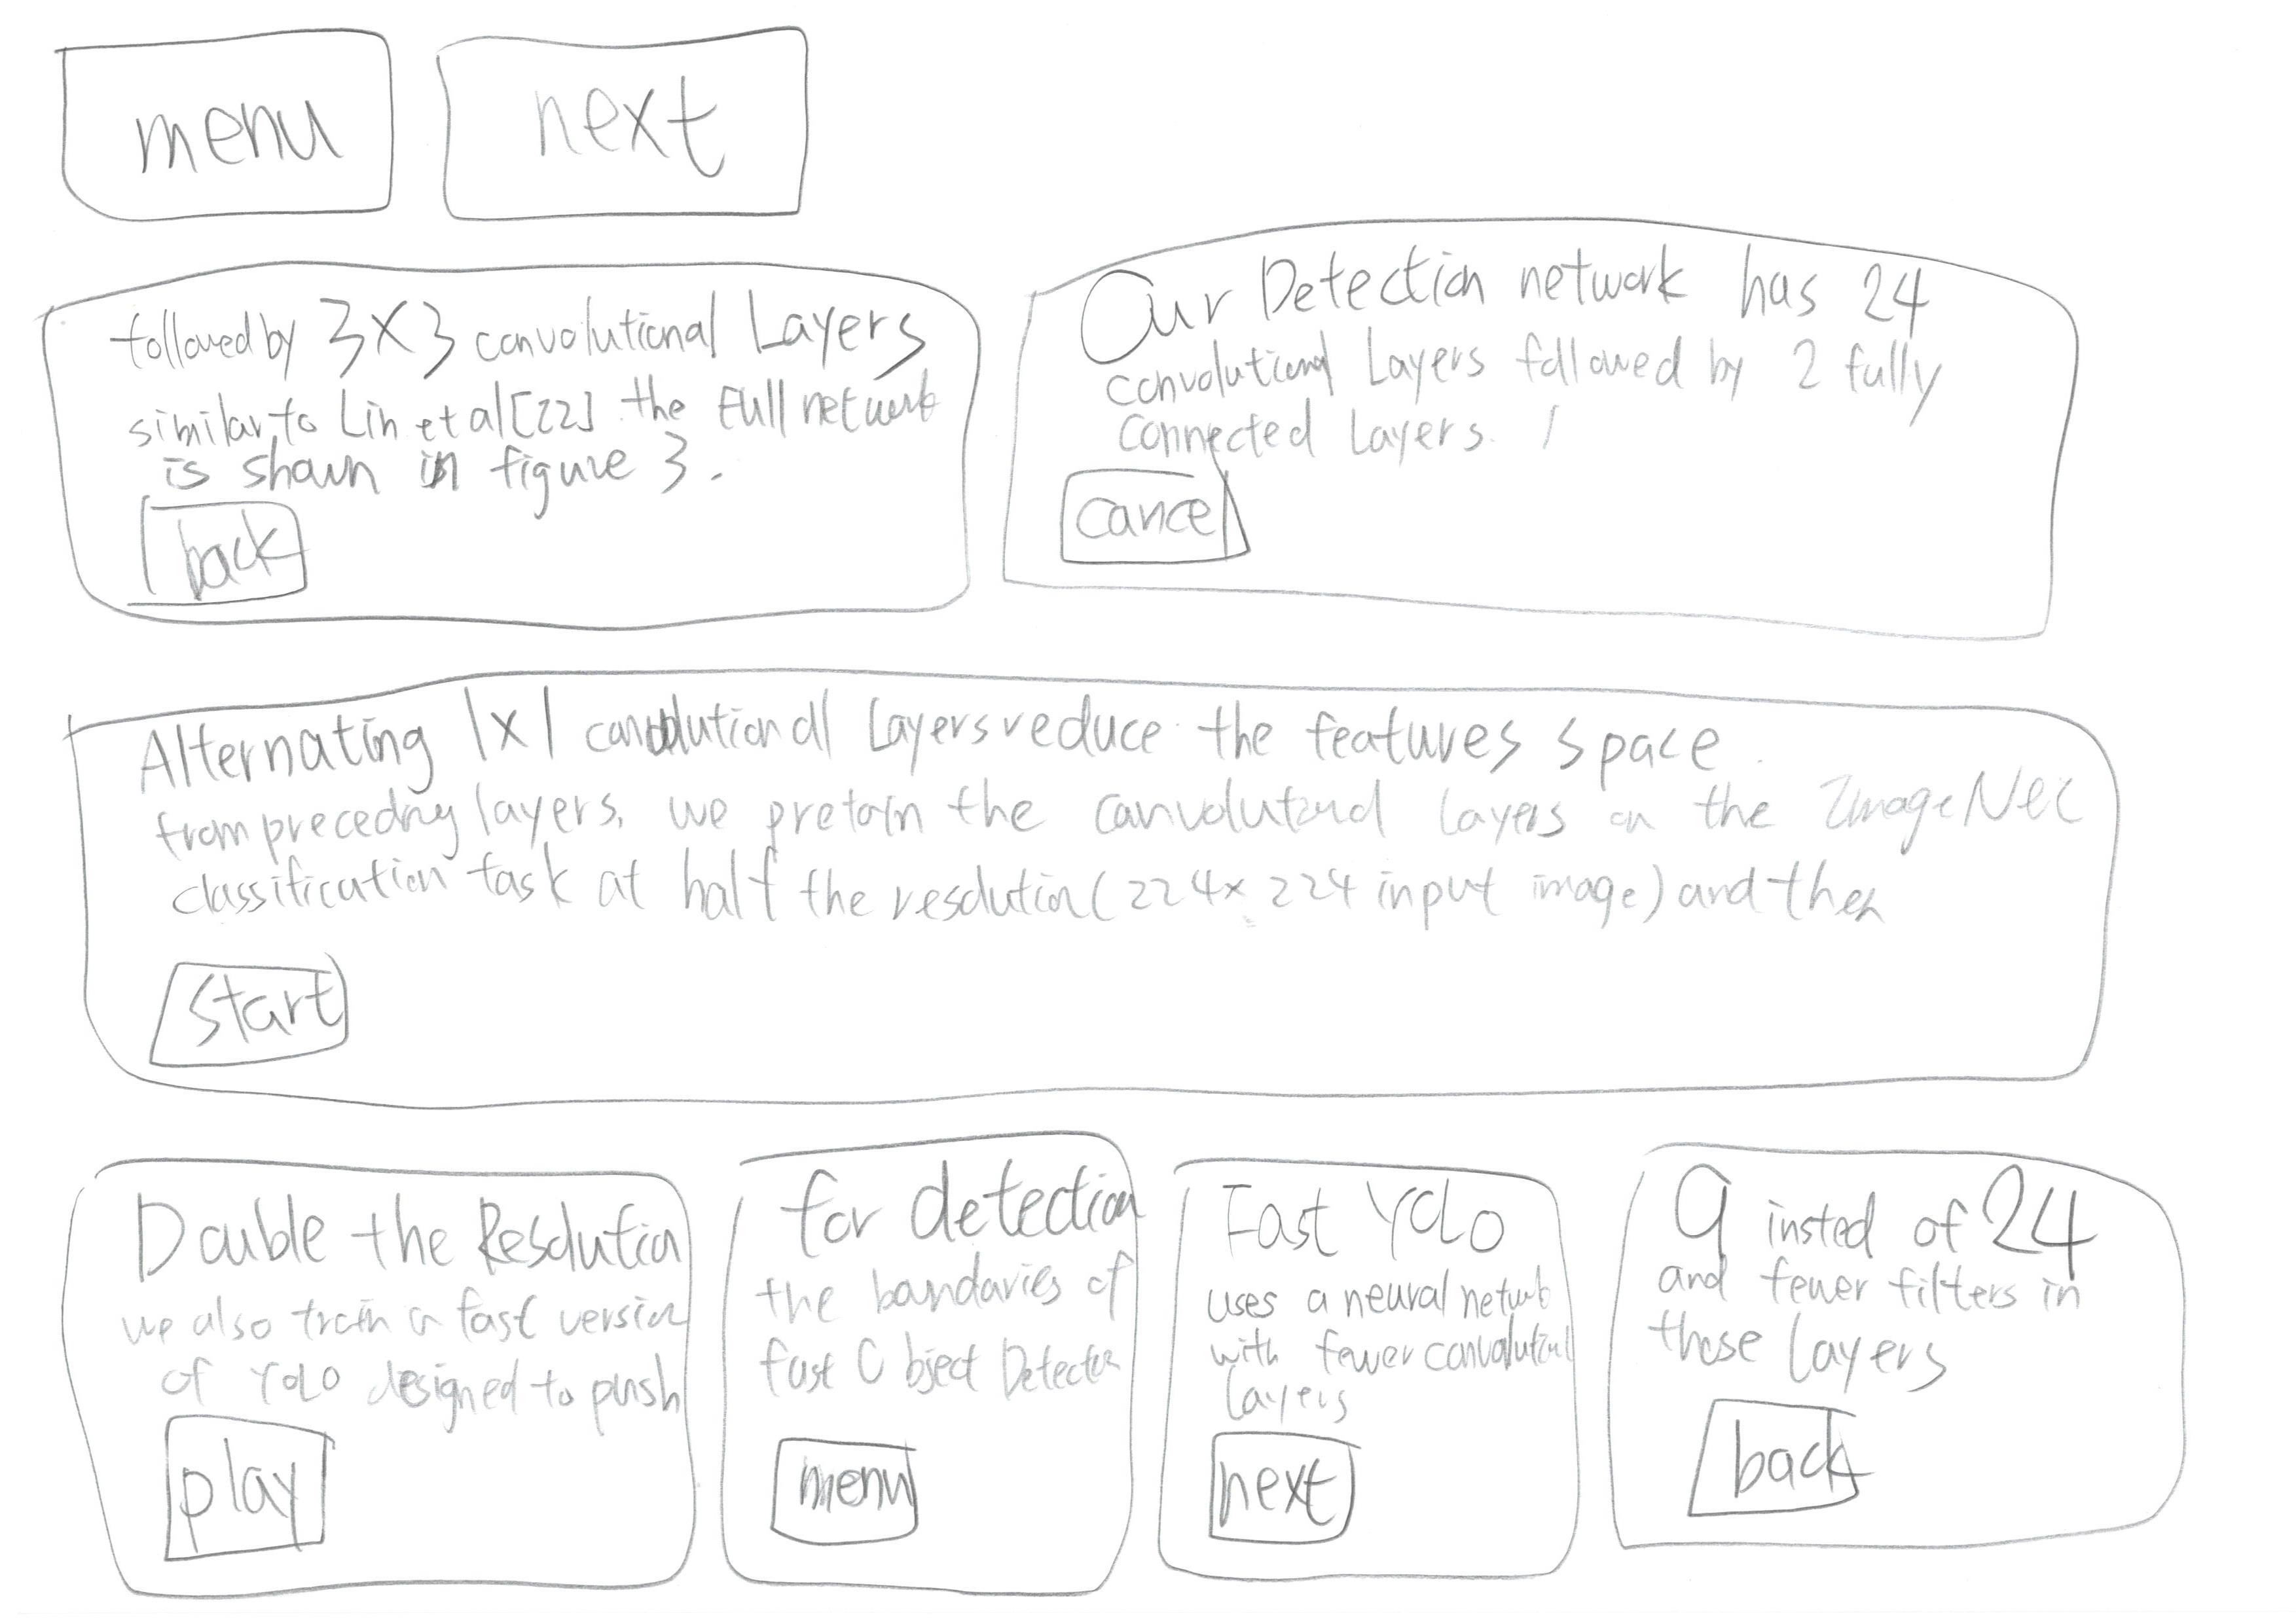 menu
next
followed by 3X3 convolutional Layers
similar to Lin et al [22] the Full network
is shown in figure 3.
back
Our Detection network has 24
convolutional Layers followed by 2 fully
Connected Layers.
cancel
Alternating 1x1 convolutional Layers reduce the features space
from preceding layers. we pretain the convolutional layers on the ImageNet
classification task at half the resolution (224x224 input image) and then
start
Double the Resolution
we also train a fast version
of YOLO designed to push
play
for detection
the boundaries of
fast Object Detector
menu
Fast YOLO
uses a neural network
with fewer convolutional
layers
next
9 insted of 24
and fewer filters in
those layers
back